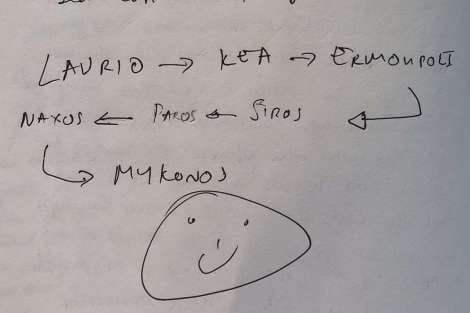 LAVRIO → KEA → ERMOUPOLI
NAXOS ← PAROS ← SIROS ←
→ MYKONOS